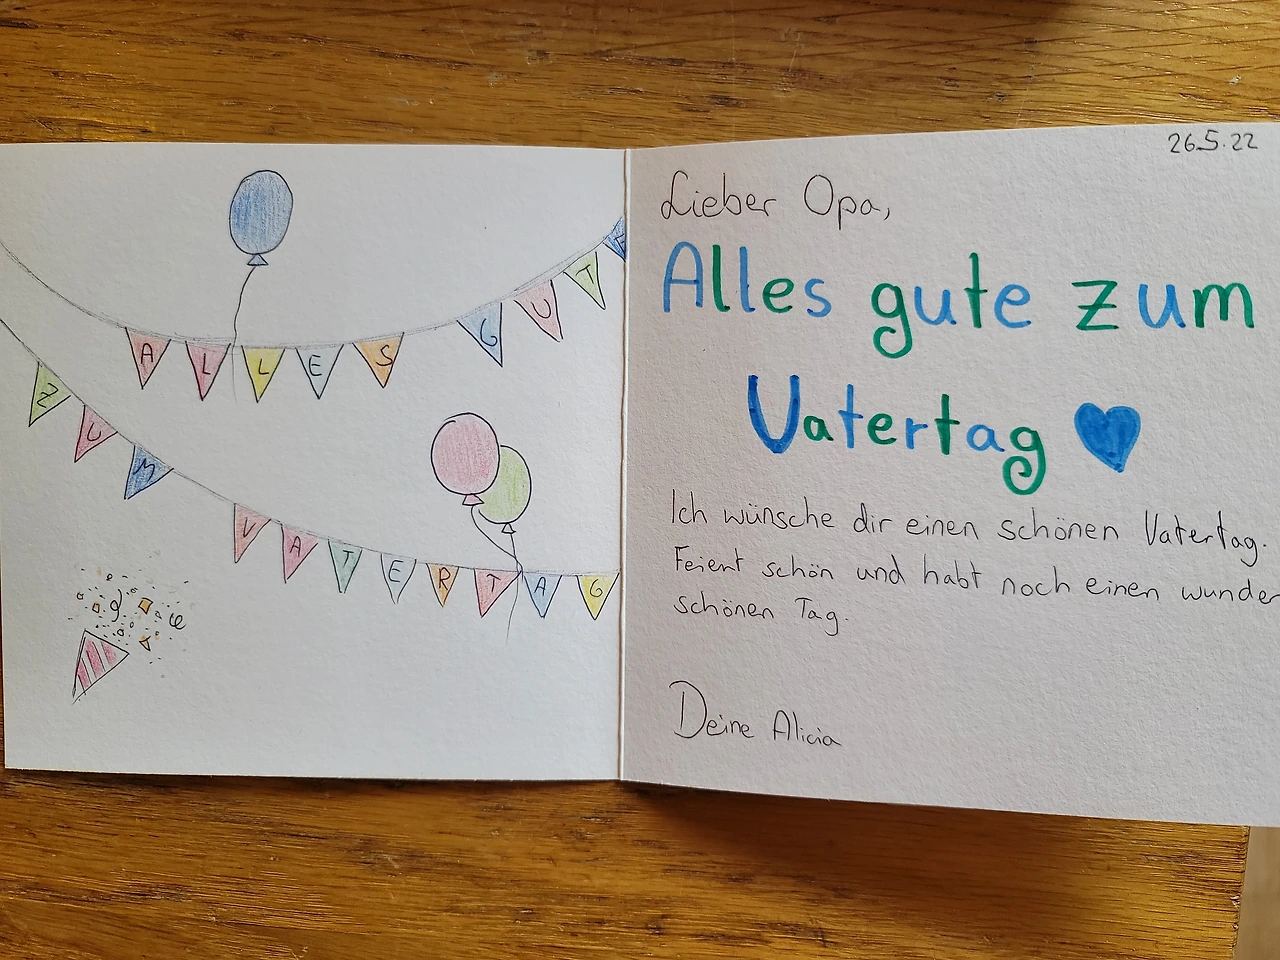 ALLES GUTE
ZUM VATERTAG
26.5.22
Lieber Opa,
Alles gute zum
Vatertag
Ich wünsche dir einen schönen Vatertag.
Feiert schön und habt noch einen wunder
schönen Tag.
Deine Alicia